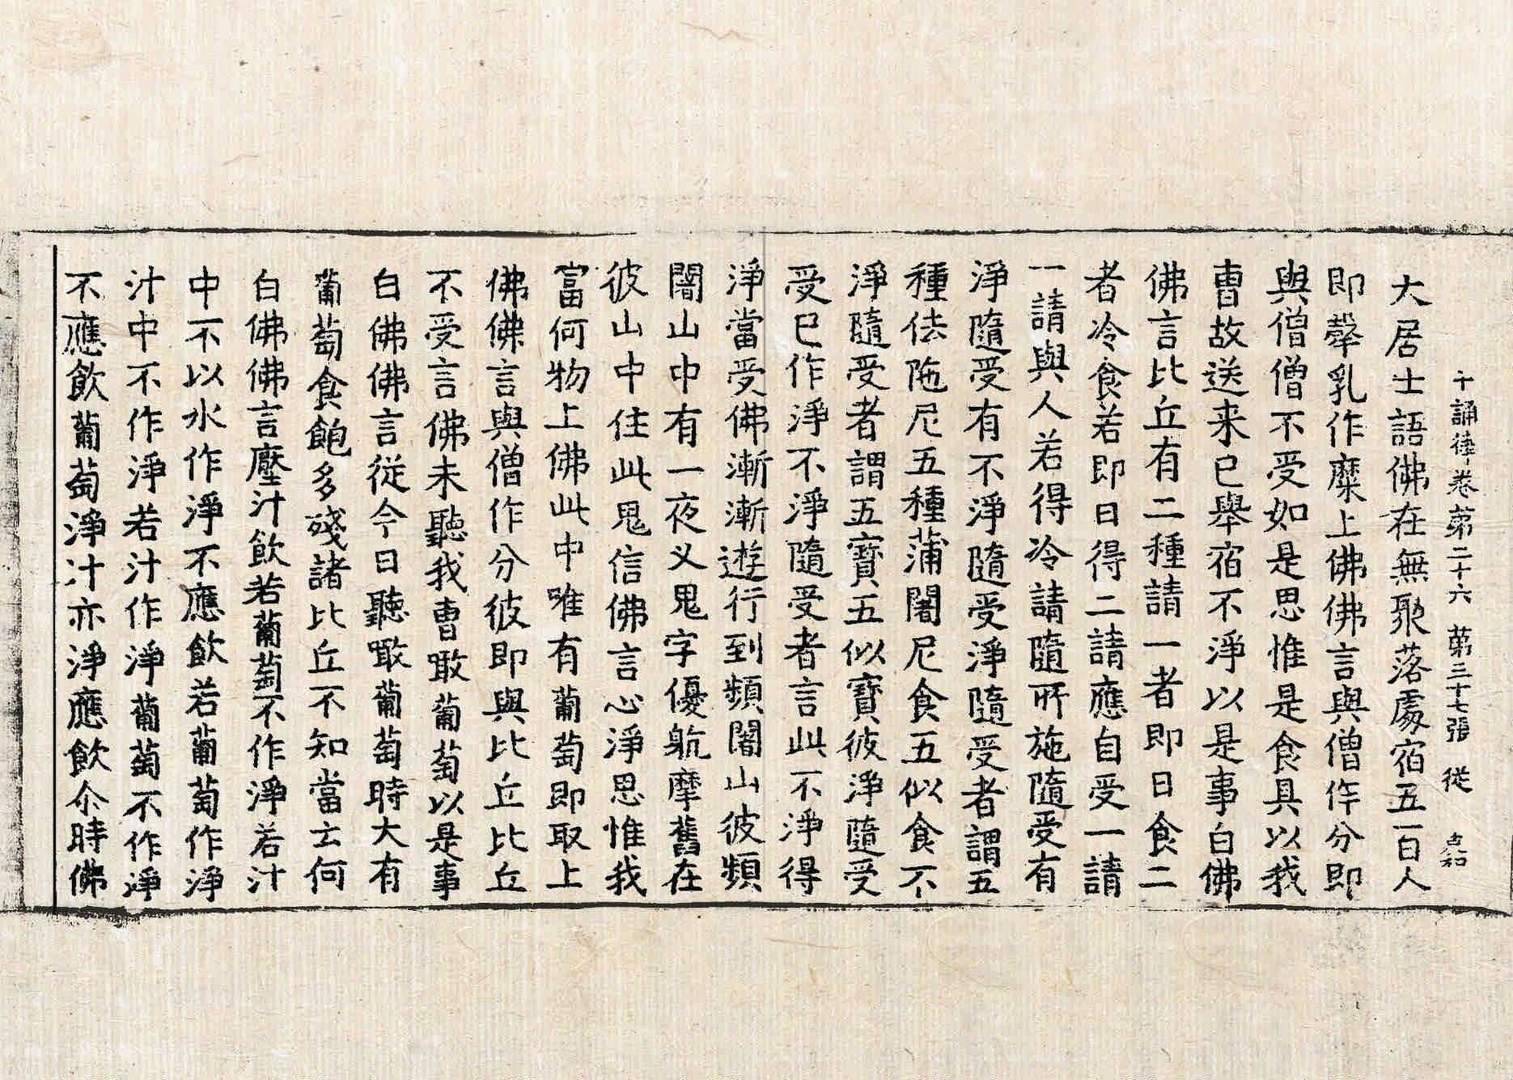 十誦律卷第二十六 第三十七張 從
大居士語佛在無聚落處宿五百人
即𤛗乳作糜上佛佛言與僧作分即
與僧僧不受如是思惟是食具以我
曹故送来已舉宿不淨以是事白佛
佛言比丘有二種請一者即日食二
者冷食若即日得二請應自受一請
一請與人若得冷請隨所施隨受有
淨隨受有不淨隨受淨隨受者謂五
種佉陁尼五種蒲闍尼食五似食不
淨隨受者謂五寶五似寶彼淨隨受
受已作淨不淨隨受者言此不淨得
淨當受佛漸漸遊行到頻闍山彼頻
闍山中有一夜叉鬼字優航摩舊在
彼山中住此鬼信佛言心淨思惟我
當何物上佛此中唯有蔔萄即取上
佛佛言與僧作分彼即與比丘比丘
不受言佛未聽我曹噉蔔萄以是事
白佛佛言從今日聽噉蔔萄時大有
蔔萄食飽多殘諸比丘不知當云何
白佛佛言壓汁飲若蔔萄不作淨若汁
中不以水作淨不應飲若蔔萄作淨
汁中不作淨若汁作淨蔔萄不作淨
不應飲蔔萄淨汁亦淨應飲尒時佛